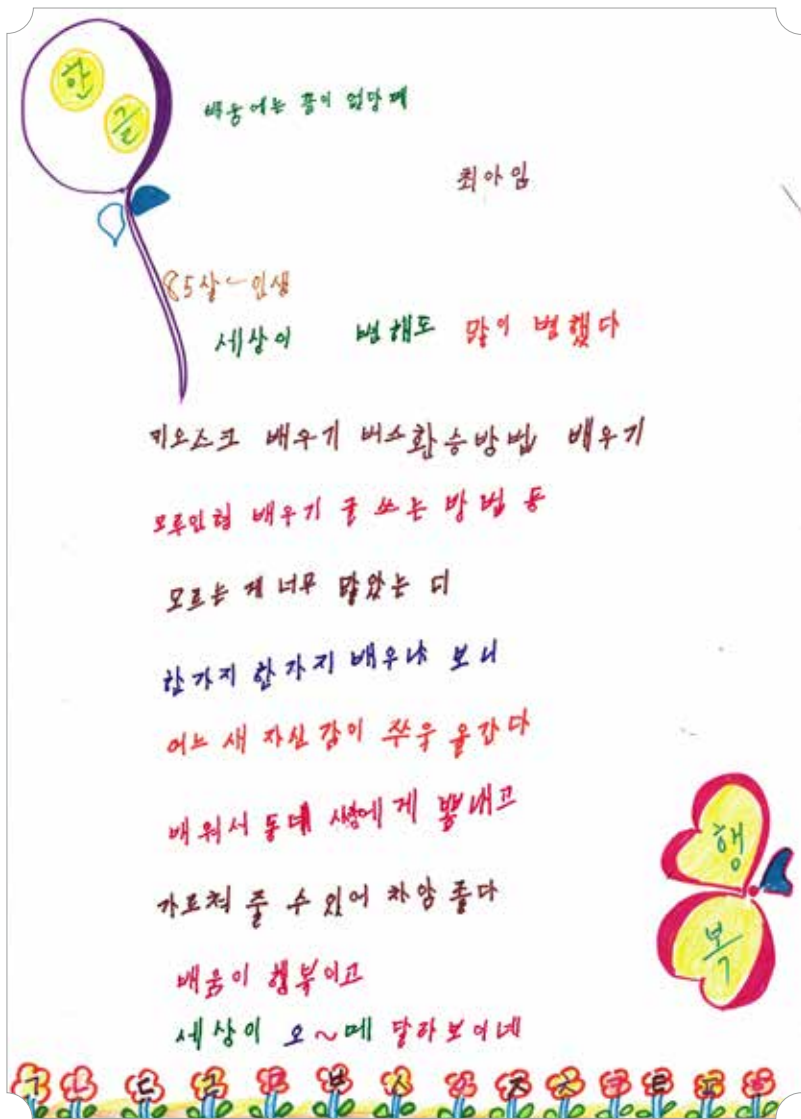 한
글
배움에는 끝이 없당께
최아임
85살 - 인생
세상이 변해도 많이 변했다
키오스크 배우기 버스환승방법 배우기
모루인형 배우기 글 쓰는 방법 등
모르는 게 너무 많았는 디
한가지 한가지 배우냐 보니
어느 새 자신 감이 쑤욱 올간다
배워서 동네 사람에게 뽐내고
가르쳐 줄 수 있어 차암 좋다
배움이 행복이고
세상이 오~메 달라보이네
행
복
ㄱ ㄴ ㄷ ㄹ ㅁ ㅂ ㅅ ㅇ ㅈ ㅊ ㅋ ㅌ ㅍ ㅎ